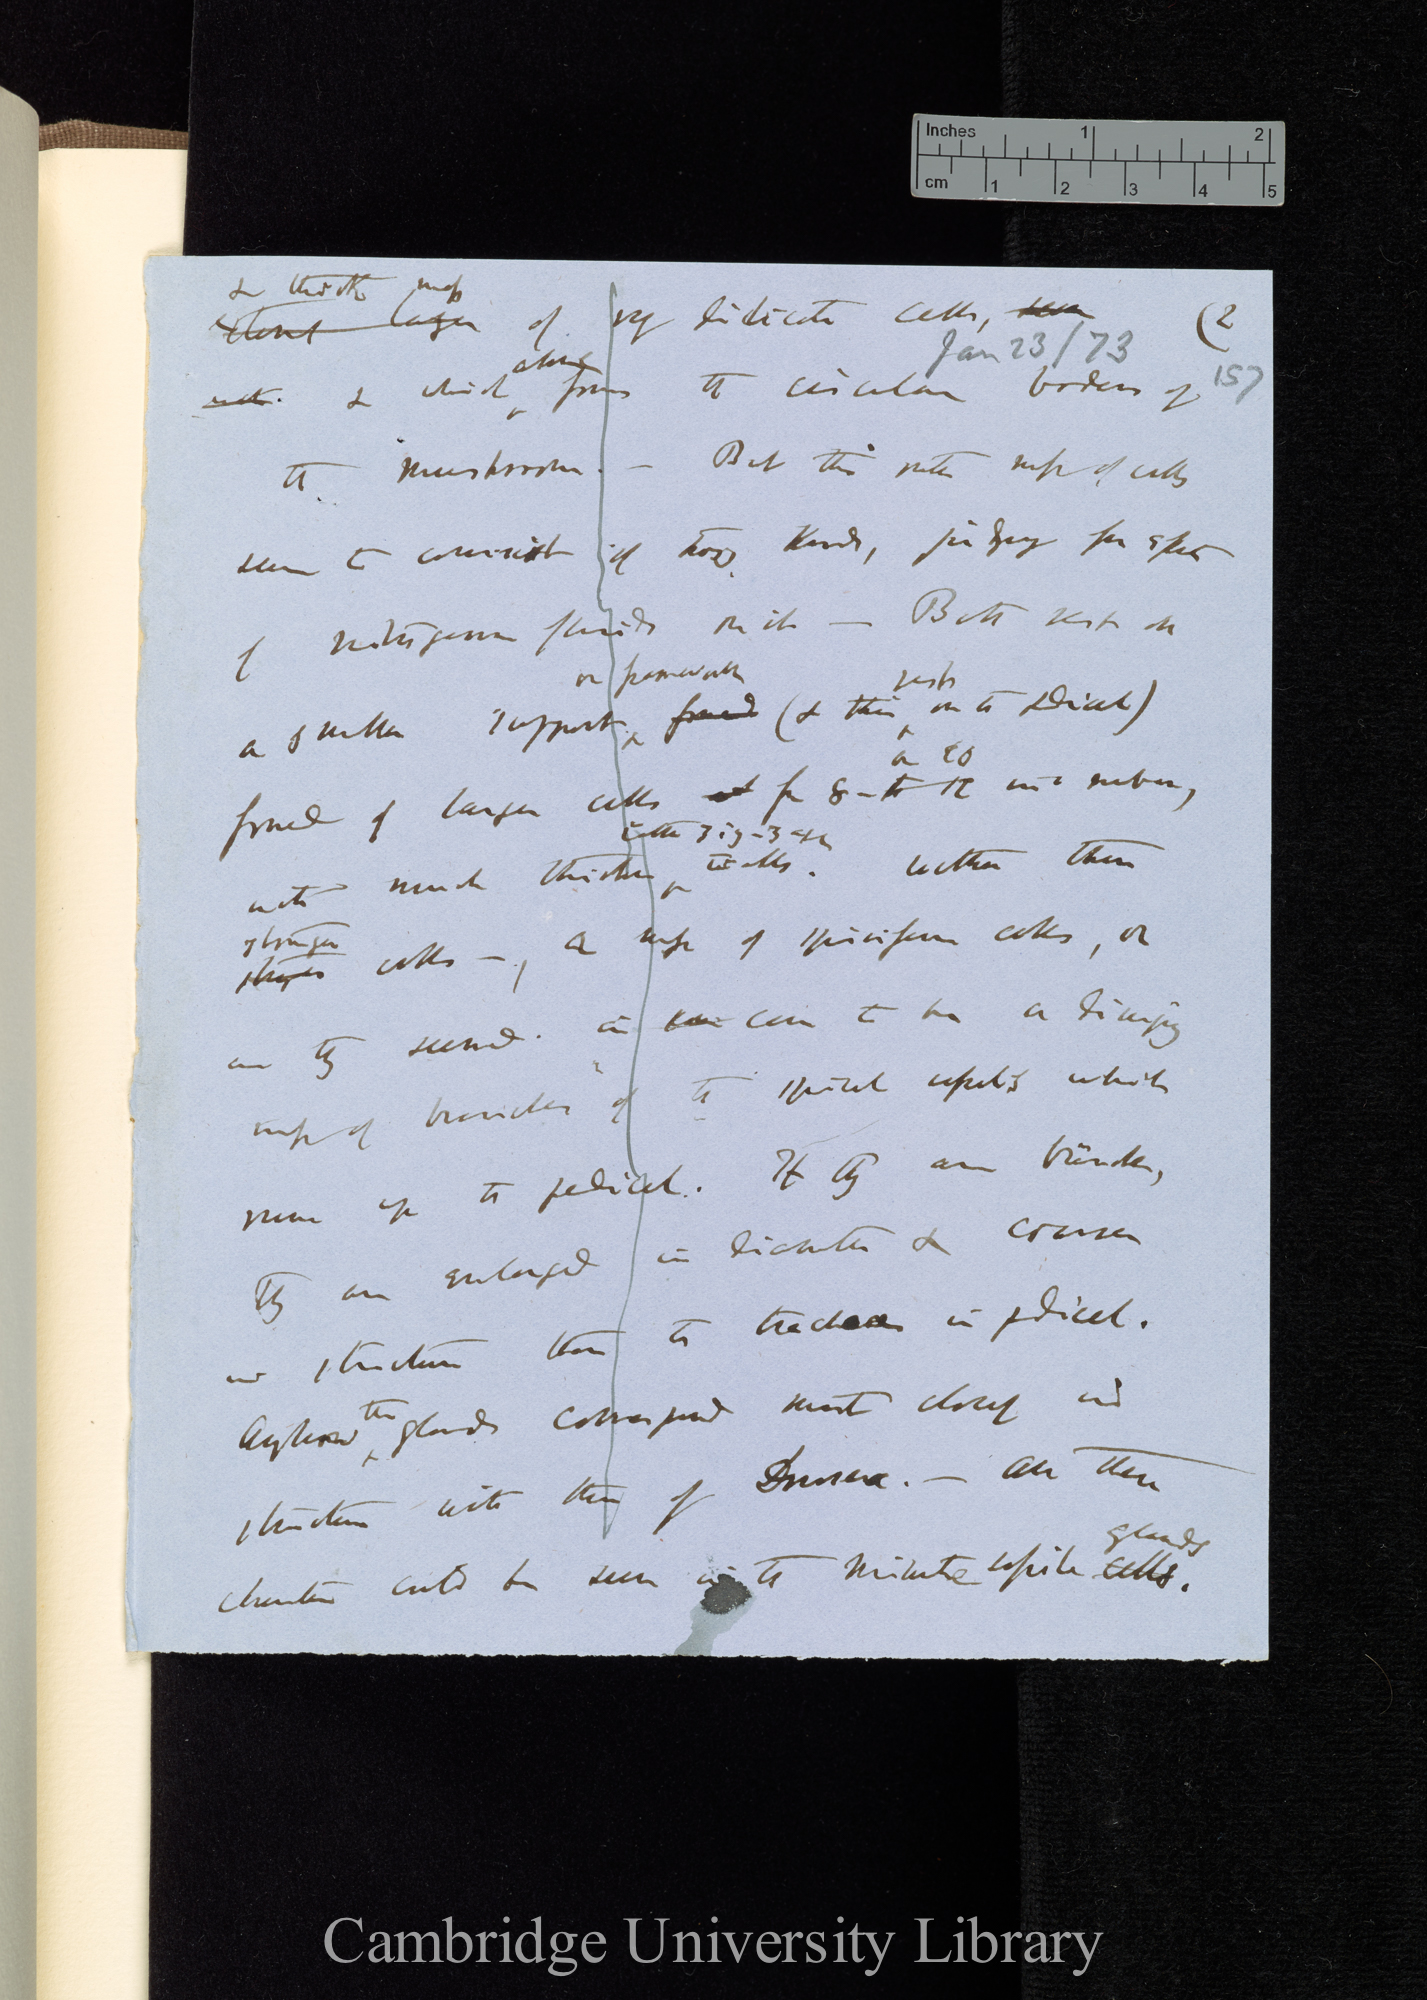 Inches 1 2
cm 1 2 3 4 5
& thick mass
of vy delicate cells, (2
Jan 23/73
157
alone
& which forms the circular border of
the mushroom. — But this outer mass of cells
seem to consist of two kinds, judging from effect
of nitrogenous fluids on it — Both rest on
or framework rests
a smaller support formed (& this on the pedicel)
or 10
formed of larger cells from 8 to 12 in number,
with zig-zag
with much thicker walls. within these
stronger
cells —, a mass of spiriferous cells, or
as they seemed in case to be a diverging
mass of branches of the spiral vessels which
run up the pedicel. If they are branches,
they are enlarged in diameter & coarser
in structure than the tracheae in pedicel.
these
Anyhow glands correspond most closely in
structure with those of Drosera. — All these
glands
characters could be seen in the minute sessile cells.
Cambridge University Library